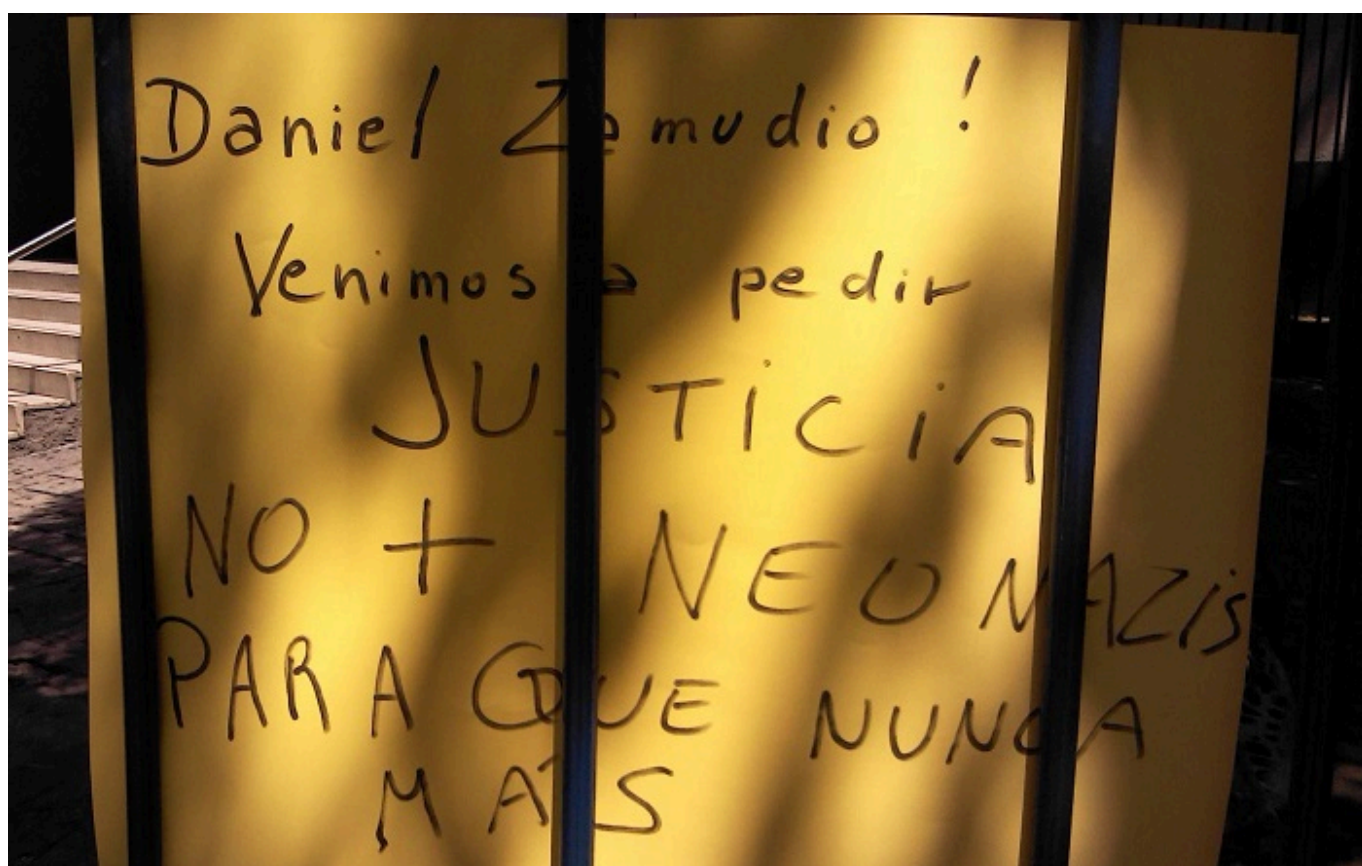 Daniel Zamudio !
Venimos a pedir
JUSTiCiA
NO + NEONAZiS
PARA QUE NUNCA
MAS